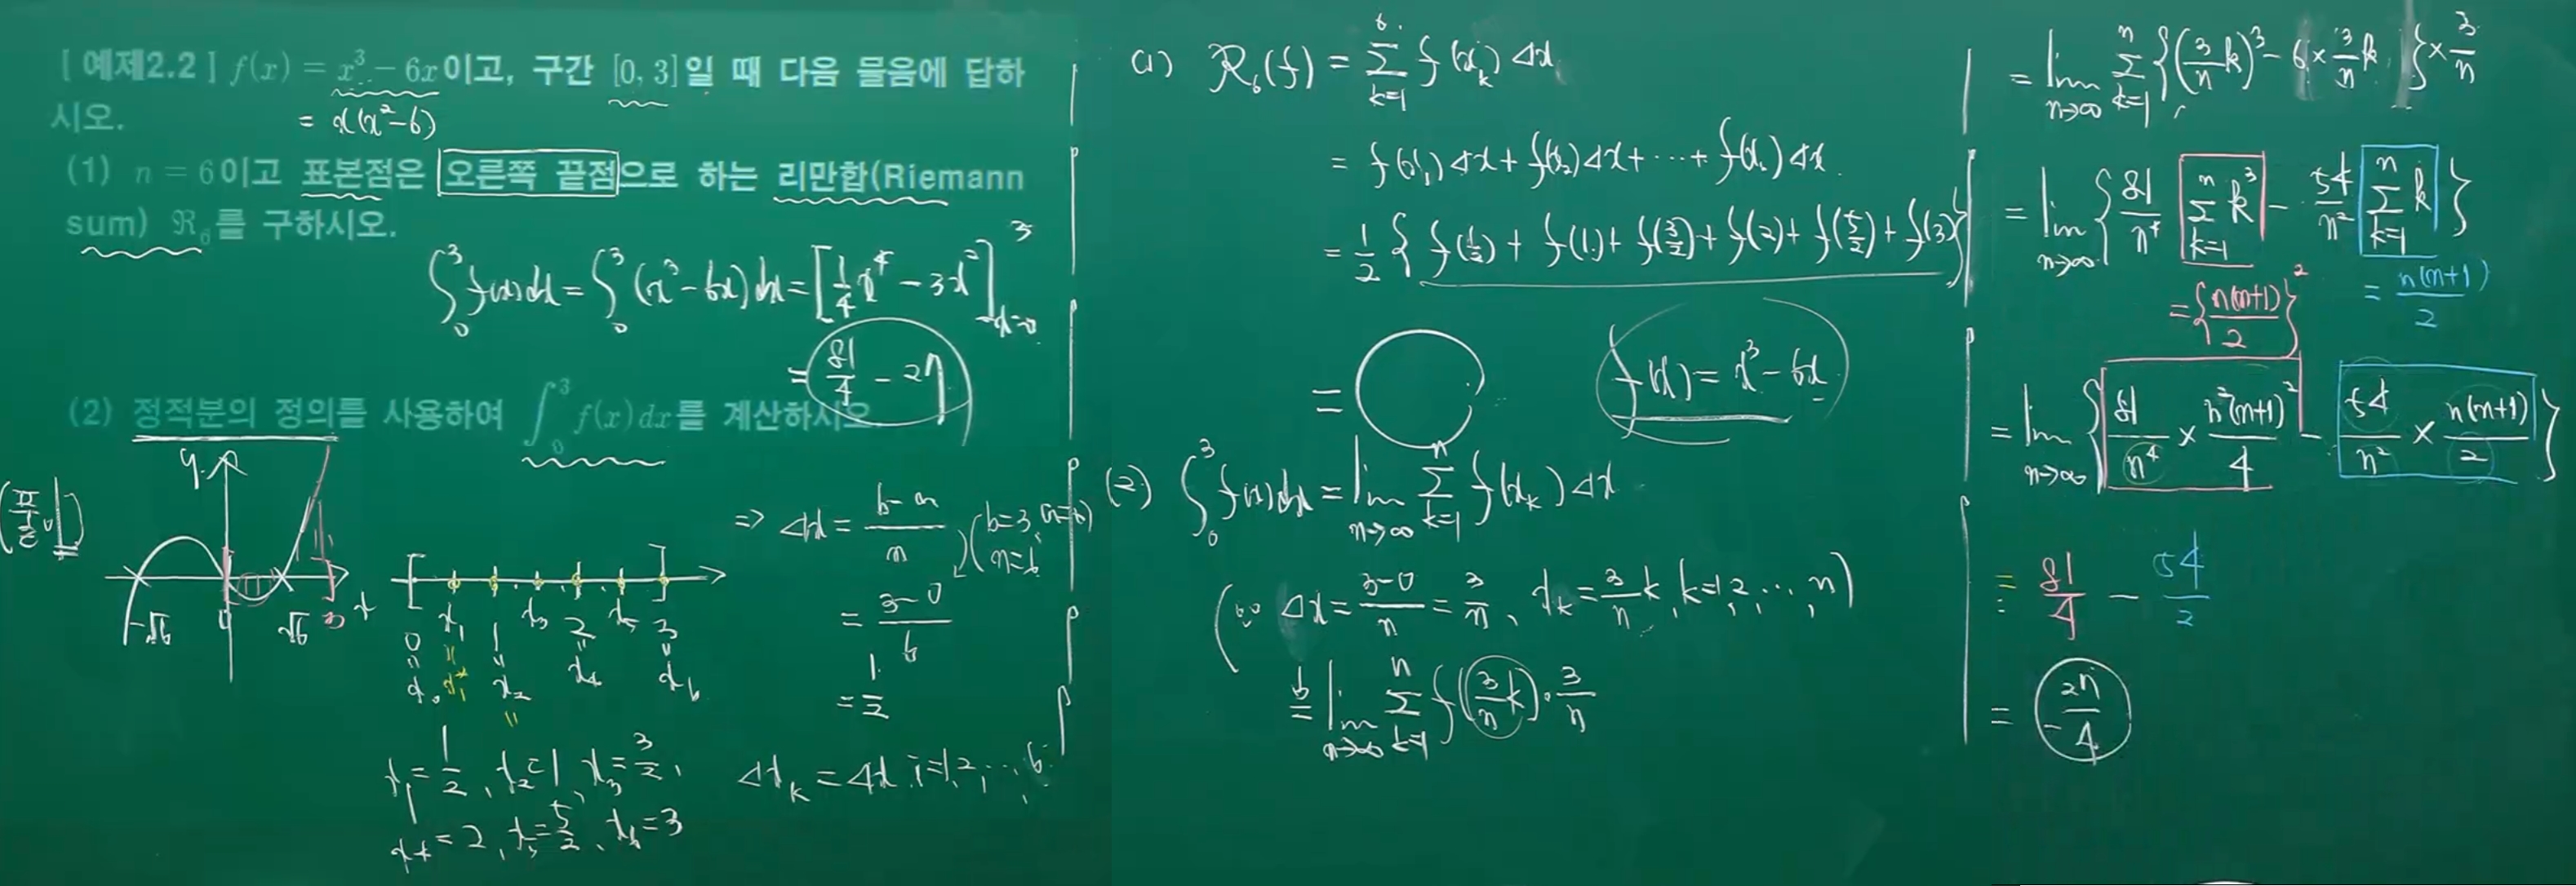 [ 예제2.2 ] f(x) = x³ - 6x이고, 구간 [0, 3]일 때 다음 물음에 답하
시오.
= x(x²-6)
(1) n = 6이고 표본점은 오른쪽 끝점으로 하는 리만합(Riemann
sum) ℜ₆를 구하시오.
∫₀³ f(x)dx = ∫₀³ (x³-6x)dx = [¼x⁴ - 3x²]ₓ₌₀³
= 81/4 - 27
(2) 정적분의 정의를 사용하여 ∫₀³ f(x)dx를 계산하시오
y
-√6 0 √6 3 x
x₁ 1 x₃ 2 x₅ 3
0 = x₀ x₁* x₂ x₄ x₆
x₁ = 1/2, x₂ = 1, x₃ = 3/2,
x₄ = 2, x₅ = 5/2, x₆ = 3
⇒ Δx = (b-a)/n (b=3, a=0, n=6)
= (3-0)/6
= 1/2
Δxₖ = Δx i=1,2,…,6
(1) R₆(f) = Σₖ₌₁⁶ f(xₖ)Δx
= f(x₁)Δx + f(x₂)Δx + ⋯ + f(x₆)Δx
= 1/2 { f(1/2) + f(1) + f(3/2) + f(2) + f(5/2) + f(3) }
=
f(x) = x³ - 6x
(2) ∫₀³ f(x)dx = lim n→∞ Σₖ₌₁ⁿ f(xₖ)Δx
(∵ Δx = (3-0)/n = 3/n, xₖ = 3/n k, k=1,2,…,n)
= lim n→∞ Σₖ₌₁ⁿ f(3/n k)·3/n
= lim n→∞ Σₖ₌₁ⁿ {(3/n k)³ - 6 × 3/n k} × 3/n
= lim n→∞ { 81/n⁴ Σₖ₌₁ⁿ k³ - 54/n² Σₖ₌₁ⁿ k }
= {n(n+1)/2}² = n(n+1)/2
= lim n→∞ { 81/n⁴ × n²(n+1)²/4 - 54/n² × n(n+1)/2 }
= 81/4 - 54/2
= -27/4